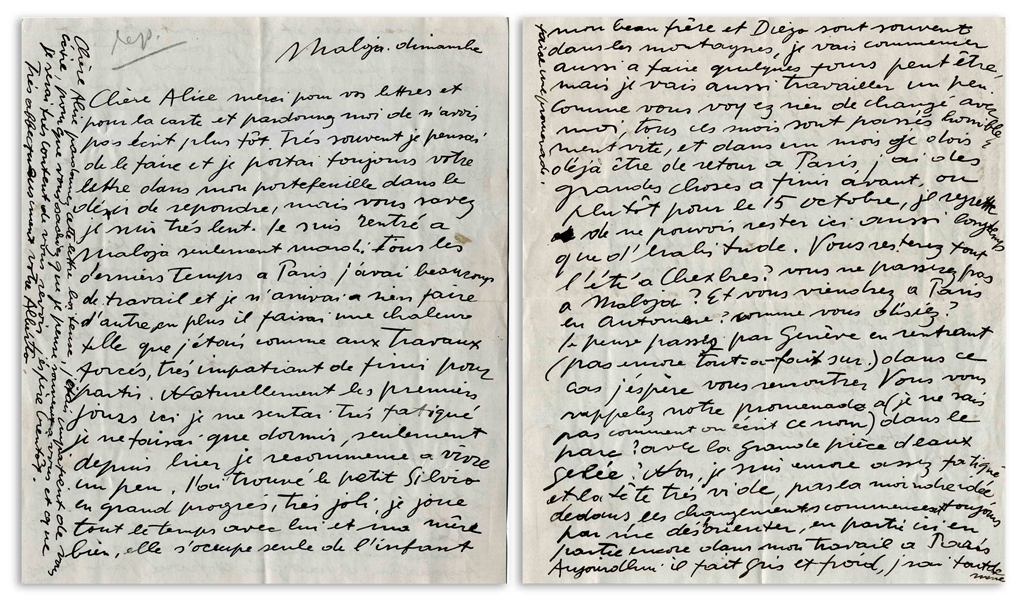 rep.
Maloja. dimanche
Chère Alice merci pour vos lettres et
pour la carte et pardonnez moi de n'avois
pas ecit plus tôt. Trés souvent je pensai
de le faire et je portai toujours votre
lettre dans mon portefeuille dans le
désir de repondre, mais vous savez
je suis très lent. Je suis rentré a
Maloja seulement mardi. Tous les
derniers temps a Paris j'avai beaucoup
de travail et je n'arrivai a rien faire
d'autre, en plus il faisai une chaleur
telle que j'étais comme aux Travaux
forcés, trés impatiant de finir pour
partir. Naturellement les premiers
jours ici je me sentai trés fatigué
je ne faisai que dormir, seulement
depuis hier je recommence a vivre
un peu. J'ai trouvé le petit Silvio
en grand progrès, très joli, je joue
tout le temps avec lui et ma mère
bien, elle s'occupe seule de l'infant
mon beau frère et Diego sont souvent
dans les montagnes, je vais commencer
aussi a faire quelques tours peut être,
mais je vais aussi travailler un peu.
Comme vous voyez rien de changé avec
moi, tous ces mois sont passés horrible-
ment vite, et dans un mois je dois
déjà être de retour a Paris, j'ai des
grandes choses a finir avant, ou
plutôt pour le 15 octobre, je regrette
de ne pouvoir rester ici aussi longtemps
que d'habitude. Vous resterez tout
l'été a Chexbres? vous ne passerez pas
a Maloja? Et vous viendrez a Paris
en Automne? comme vous disiez?
Je pense passer par Genève en rentrant
(pas encore tout-a-fait sur.) dans ce
cas j'espère vous remontrer. Vous vous
rappelez notre promenade a (je ne sais
pas comment on écrit ce nom) dans le
parc? avec la grande pièce d'eaux
gelée? Non, je suis encore assez fatigué
et la tête très vide, pas la moindre idée
dedans, les changements commencent toujours
par me désorienter, en partie ici en
partie encore dans mon travail a Paris
Aujourdhui il fait gris et froid, j'irai tout de
meme
faire une promenade.
Chère Alice pardonnez cette lettre bien terne, j'étais impatient de vous
ecire, pour que vous sachiez que je pense souvent a vous et que
je serai très content de vous revoir, j'espère bientôt.
Très affectueusement votre Alberto.